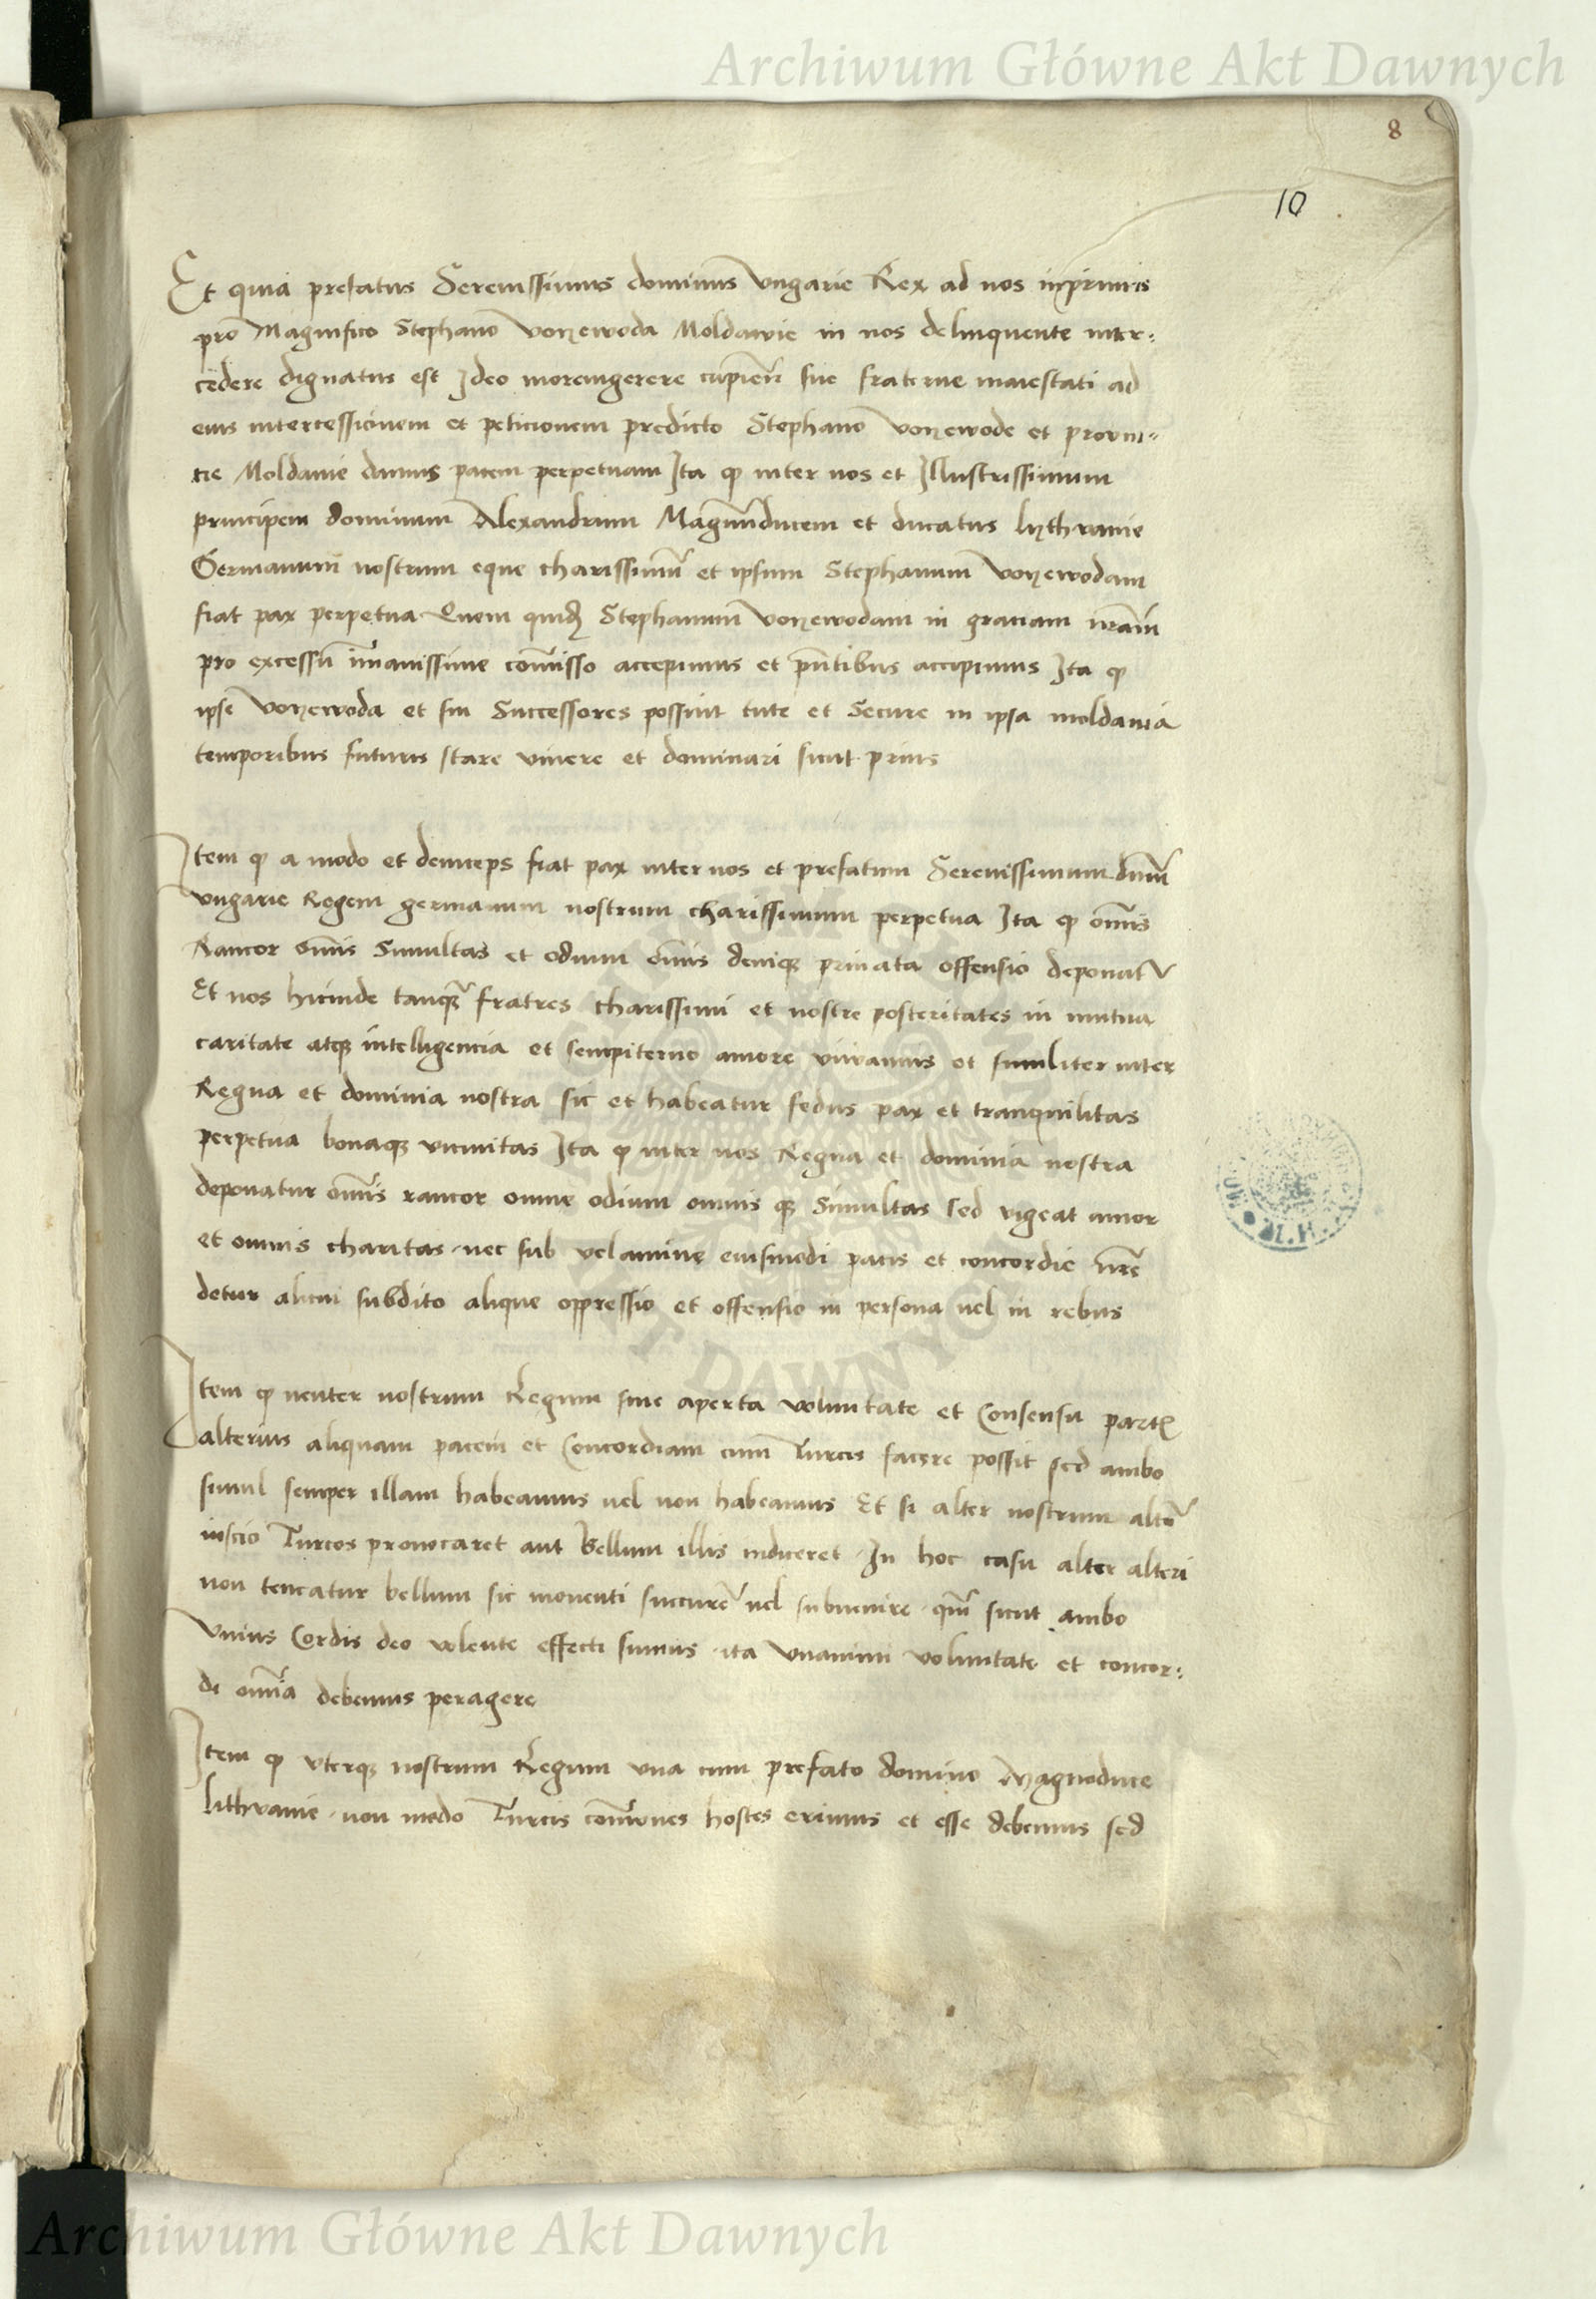 Archiwum Główne Akt Dawnych
8
10
Et quia prefatus Serenissimus dominus Vngarie Rex ad nos inprimis
pro Magnifico Stephano Voyewoda Moldawie in nos delinquente inter:
cedere dignatus est Ideo moremgerere cupientes sue fraterne maiestati ad
eius intercessionem et peticionem predicto Stephano Voyewode et provin=
cie Moldauie damus pacem perpetuam Ita qp inter nos et Illustrissimum
principem dominum Alexandrum Magnūducem et ducatus lythvanie
Germanum nostrum eque charissimū et ipsum Stephanum Voyewodam
fiat pax perpetua Quem quidē Stephanum Voyewodam in gratiam nr̄am
pro excessu immanissime cōmisso accepimus et pn̄tibus accipimus Ita qp
ipse Voyewoda et sui Successores possint tute et Secure in ipsa moldauia
temporibus futuris stare viuere et dominari sicut prius
Item qp a modo et deinceps fiat pax inter nos et prefatum Serenissimum dn̄um
vngarie Regem germanum nostrum charissimum perpetua Ita qp om̄is
Rancor om̄is Simultas et odium om̄is deniqȝ priuata offensio deponatur
Et nos hicinde tanqȝ fratres charissimi et nostre posteritates in mutua
caritate atqȝ intelligencia et sempiterno amore viuamus et similiter inter
Regna et dominia nostra sic et habeatur fedus pax et tranquilitas
perpetua bonaqȝ vicinitas Ita qp inter nos Regna et dominia nostra
deponatur om̄is rancor omne odium omnis qȝ Simultas sed vigeat amor
et omnis charitas nec sub velamine eiusmodi pacis et concordie nr̄e
detur alicui subdito alique oppressio et offensio in persona uel in rebus
Item qp neuter nostrum Regum sine aperta voluntate et Consensu partis
alterius aliquam pacem et Concordiam cum Turcis facere possit sed ambo
simul semper illam habeamus uel non habeamus Et si alter nostrum altero
inscio Turcos prouocaret aut bellum illis induceret In hoc casu alter alteri
non teneatur bellum sic mouenti succurrere uel subuenire qm̄ sicut ambo
Vnius Cordis deo volente effecti sumus ita Vnanimi voluntate et concor:
di om̄ia debemus peragere
Item qp vterqȝ nostrum Regum vna cum prefato domino Magnoduce
lithvanie non modo Turcis cōmunes hostes erimus et esse debemus sed
Archiwum Główne Akt Dawnych